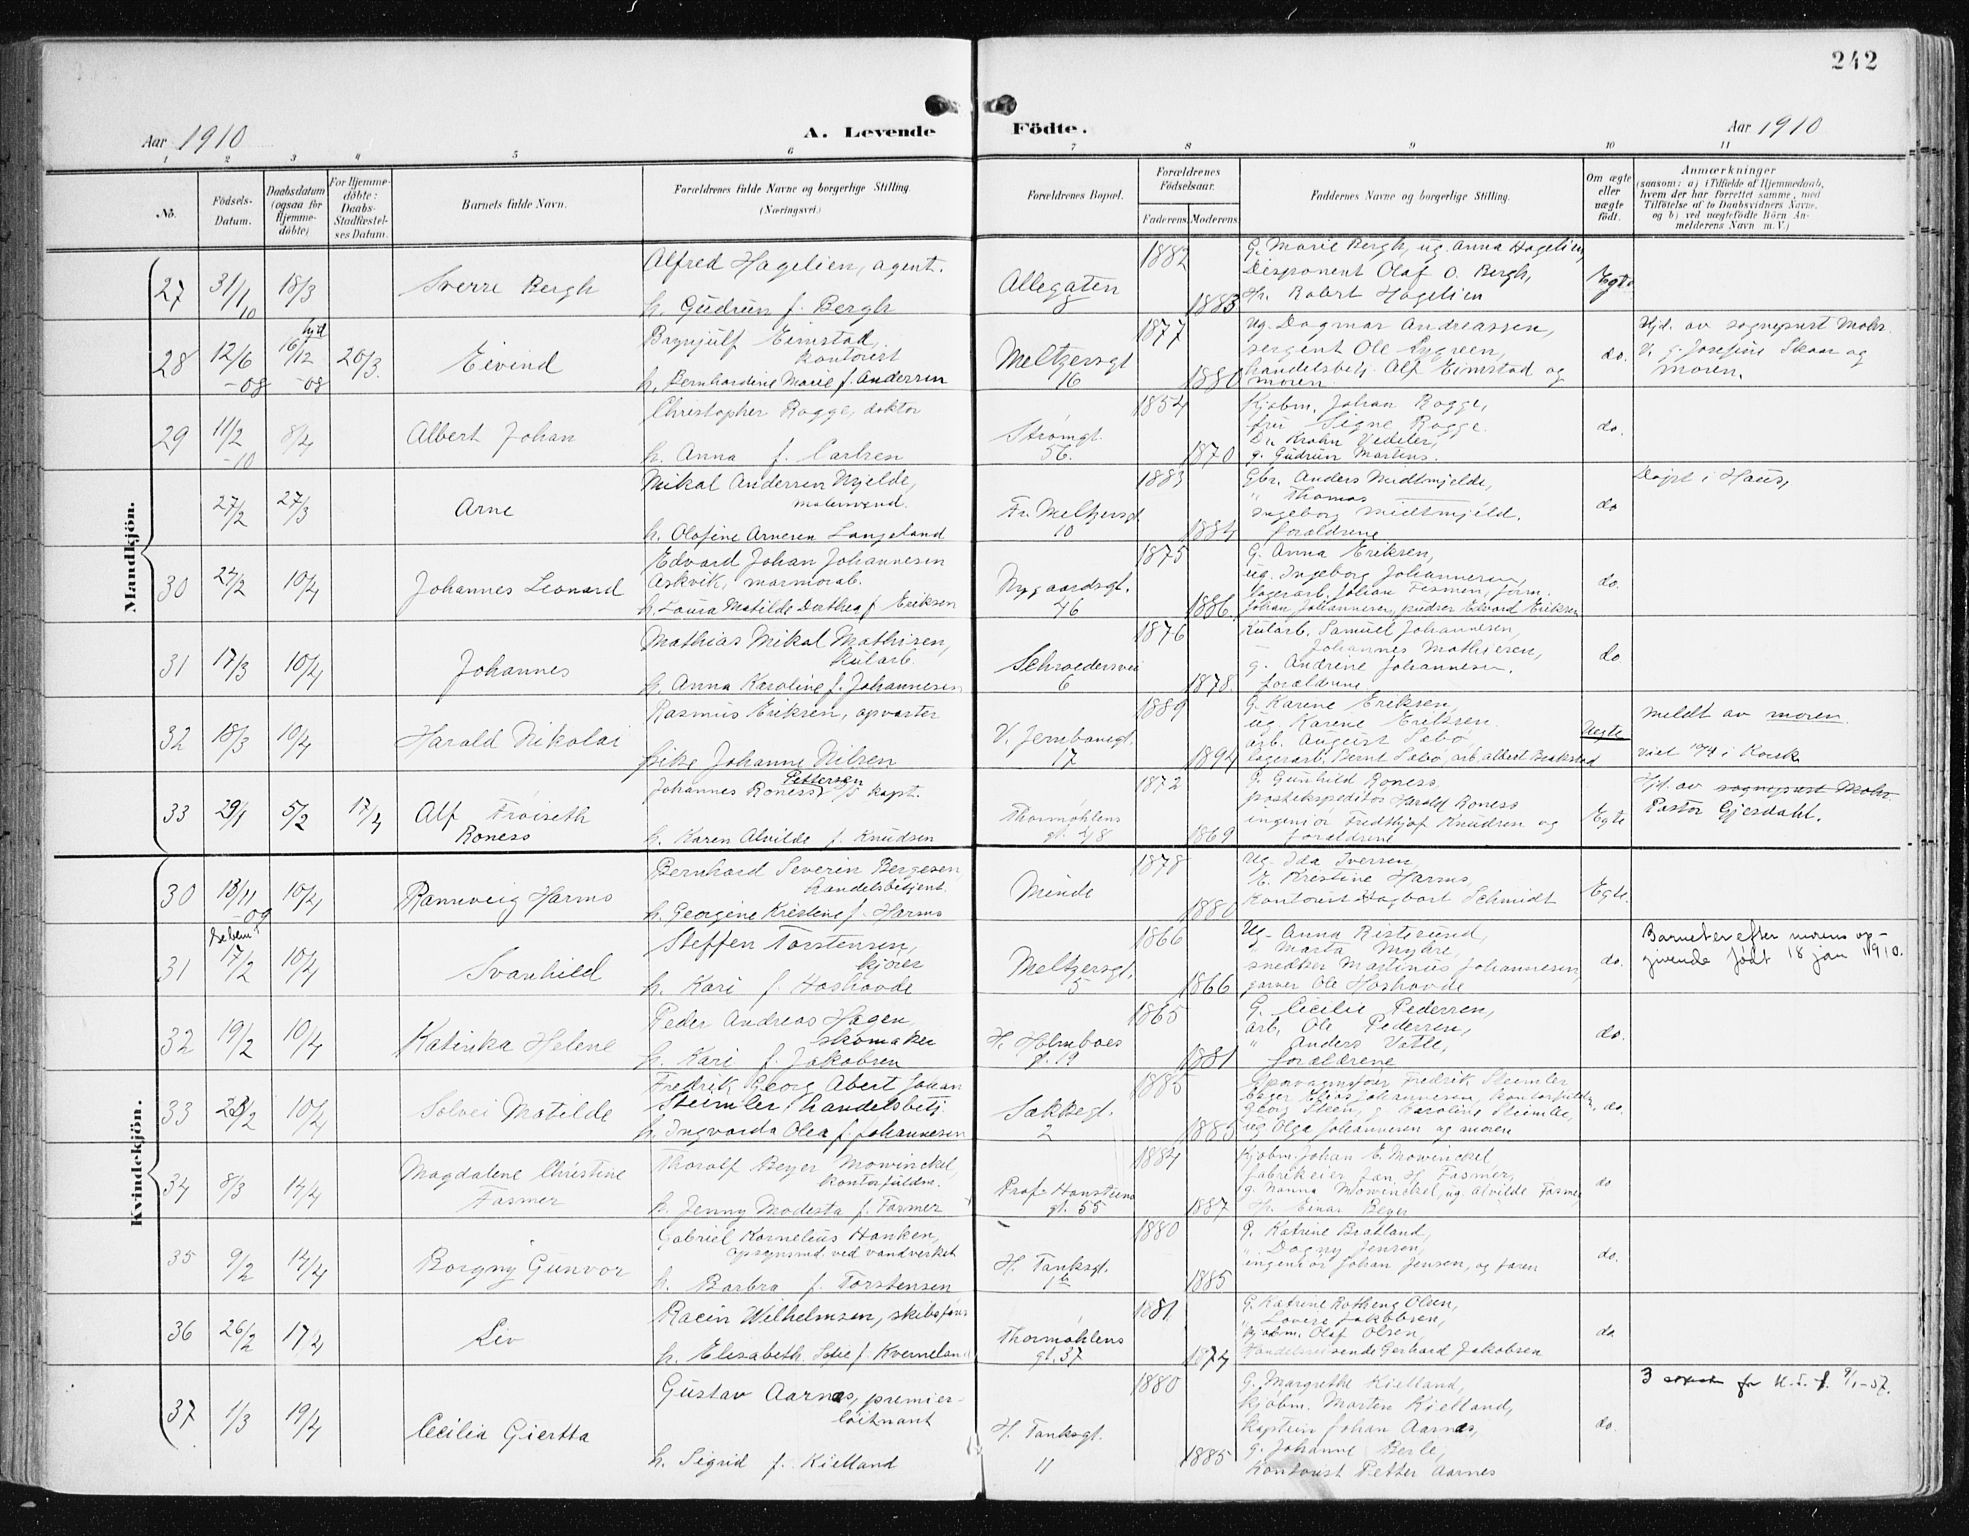 242
Aar 1910
A. Levende
Födte.
Aar 1910
1 2 3 4 5 6 7 8 9 10 11
No.
Födsels-Datum.
Daabsdatum (ogsaa for Hjemme-döbte)
For Hjemme-döbte: Daabs-Stadfæstel-ses Datum.
Barnets fulde Navn.
Forældrenes fulde Navne og borgerlige Stilling. (Næringsvei.)
Forældrenes Bopæl.
Forældrenes Födselsaar.
Faderens. Moderens.
Faddernes Navne og borgerlige Stilling.
Om ægte eller uægte födt.
Anmærkninger
(saasom: a) i Tilfælde af Hjemmedaab,
hvem der har forrettet samme, med
Tilföielse af to Daabsvidners Navne,
og b) ved uægtefödte Börn An-
melderens Navn m. V.)
Mandkjön.
27 31/1 10 18/3 Sverre Bergh
Alfred Hagelien, agent.
h. Gudrun f. Bergh
Allegaten 8
1882 1883
G. Marie Bergh, ug. Anna Hagelien,
Disponent Olaf O. Bergh,
Hr. Robert Hagelien
Egte
28 12/6 -08 hjd 16/12 -08 20/3 Eivind
Brynjulf Eimstad, kontorist
h. Bernhardine Marie f. Andersen
Meltzersgt 16
1877 1880
ug. Dagmar Andreassen,
sergent Ole Nygreen,
handelsbetj. Alf Eimstad og
moren
do.
Hjd. av sogneprest Mohr.
V. g. Josefine Skaar og
moren.
29 11/2 -10 8/4 Albert Johan
Christopher Rogge, doktor
h. Anna f. Carlsen
Strømgt. 56.
1854 1870
Kjøbm. Johan Rogge,
fru Signe Rogge
Dr. Krohn Vedeler,
g. Gudrun Martens.
do.
27/2 27/3 Arne
Mikal Andersen Mjelde,
matersvend.
h. Olafine Arnesen Langeland
Fr. Meltzersgt 10
1883 1884
Gbr. Anders Midtmjelde,
" Thomas
Ingeborg Midtmjeld.
forældrene
do
Døpt i Haus,
30 27/2 10/4 Johannes Leonard
Edvard Johan Johannesen
Askvik, marmorarb.
h. Laura Matilde Dorthea f. Eriksen
Nygaardsgt. 46
1875 1886
G. Anna Eriksen,
ug. Ingeborg Johannesen,
lagerarb. Johan Tesmen, form.
Johan Johannesen, pudser Edvard Eriksen
do.
31 17/3 10/4 Johannes
Mathias Mikal Mathisen,
kularb.
h. Anna Karoline f. Johannesen
Schroedersvei 6
1876 1878
Kularb. Samuel Johannesen,
– Johannes Mathiesen,
g. Andrine Johannesen.
forældrene
do
32 18/3 10/4 Harald Nikolai
Rasmus Eriksen, opvarter
pike Johanne Nilsen
V. Jernbanegt. 17
1889 1894
G. Karene Eriksen,
ug. Karene Eriksen.
arb. August Sæbø
lagerarb. Bernt Sæbø, arb. Albert Brakstad
Uegte
Meldt av moren.
viet 10/4 i Korsk.
33 29/1 5/2 17/4 Alf Frøiseth Roness
Johannes Roness Pettersen D/S kapt.
h. Karen Alvilde f. Knudsen
Thormøhlens gt. 48
1872 1869
G. Gunhild Roness
postekspeditør Harald Roness
ingeniør Fredthjof Knudsen og
forældrene
Egte
Hjd. av sogneprest Mohr.
Pastor Gjesdahl.
Kvindekjön.
30 18/11 -09 10/4 Rannveig Harms
Bernhard Severin Bergesen,
handelsbetjent
h. Georgine Kristine f. Harms
Minde
1878 1880
Ug. Ida Iversen,
E. Kristine Harms,
kontorist Hagbart Schmidt
Egte.
31 17/2 10/4 Svanhild
Steffen Torstensen,
kjører
h. Kari f. Hashovde
Meltzersgt. 5
1866 1866
Ug. Anna Ristesund,
" Marta Myhre,
snedker Martinus Johannesen,
garver Ole Hashovde
do.
Barnet er efter morens op-
givende født 18 jan 1910.
32 19/2 10/4 Katinka Helene
Peder Andreas Hagen,
skomaker
h. Kari f. Jakobsen
H. Holmboes g. 19
1865 1881
G. Cecilie Pedersen,
arb. Ole Pedersen,
" Anders Vatle,
forældrene
do.
33 23/2 10/4 Solvei Matilde
Fredrik Georg Abert Johan
Steimler, handelsbetj.
h. Ingvarda Olea f. Johannesen
Sækkegt. 2
1885 1885
Sporvognsfører Fredrik Steimler,
bager Elias Johannesen, kontorfuldm.
Georg Steen, g. Karoline Steimler,
ug Olga Johannesen og moren
do.
34 8/3 14/4 Magdalene Christine Fasmer
Thoralf Beyer Mowinckel,
kontorfuldm.
h. Jenny Modesta f. Fasmer
Prof. Hansteens gt. 55
1884 1887
Kjøbm. Johan E. Mowinckel
fabrikeier Jan H. Fasmer,
g. Nanna Mowinckel, ug. Alvilde Fasmer,
Hr. Einar Beyer
do
35 9/2 14/4 Borgny Gunvor
Gabriel Kornelius Hanken,
opsynsmd. ved vandverket
h. Barbra f. Torstensen
H. Tanksgt. 1b
1880 1885
G. Katrine Bratland,
" Dagny Jensen,
ingeniør Johan Jensen, og faren
do.
36 26/2 17/4 Liv
Racin Wilhelmsen, skibsfører
h. Elisabeth Sofie f. Kverneland
Thormøhlens gt. 37
1881 1874
G. Katrine Rotheng Olsen,
" Lovise Jakobsen,
kjøbm. Olaf Olsen,
Handelsreisende Gerhard Jakobsen
do
37 1/3 19/4 Cecilia Giertta
Gustav Aarnes, premier-
løitnant
h. Sigrid f. Kielland
H. Tanksgt. 11
1880 1885
G. Margrethe Kielland,
kjøbm. Morten Kielland,
kaptein Johan Aarnes,
g. Johanne Berle,
kontorist Petter Aarnes
do.